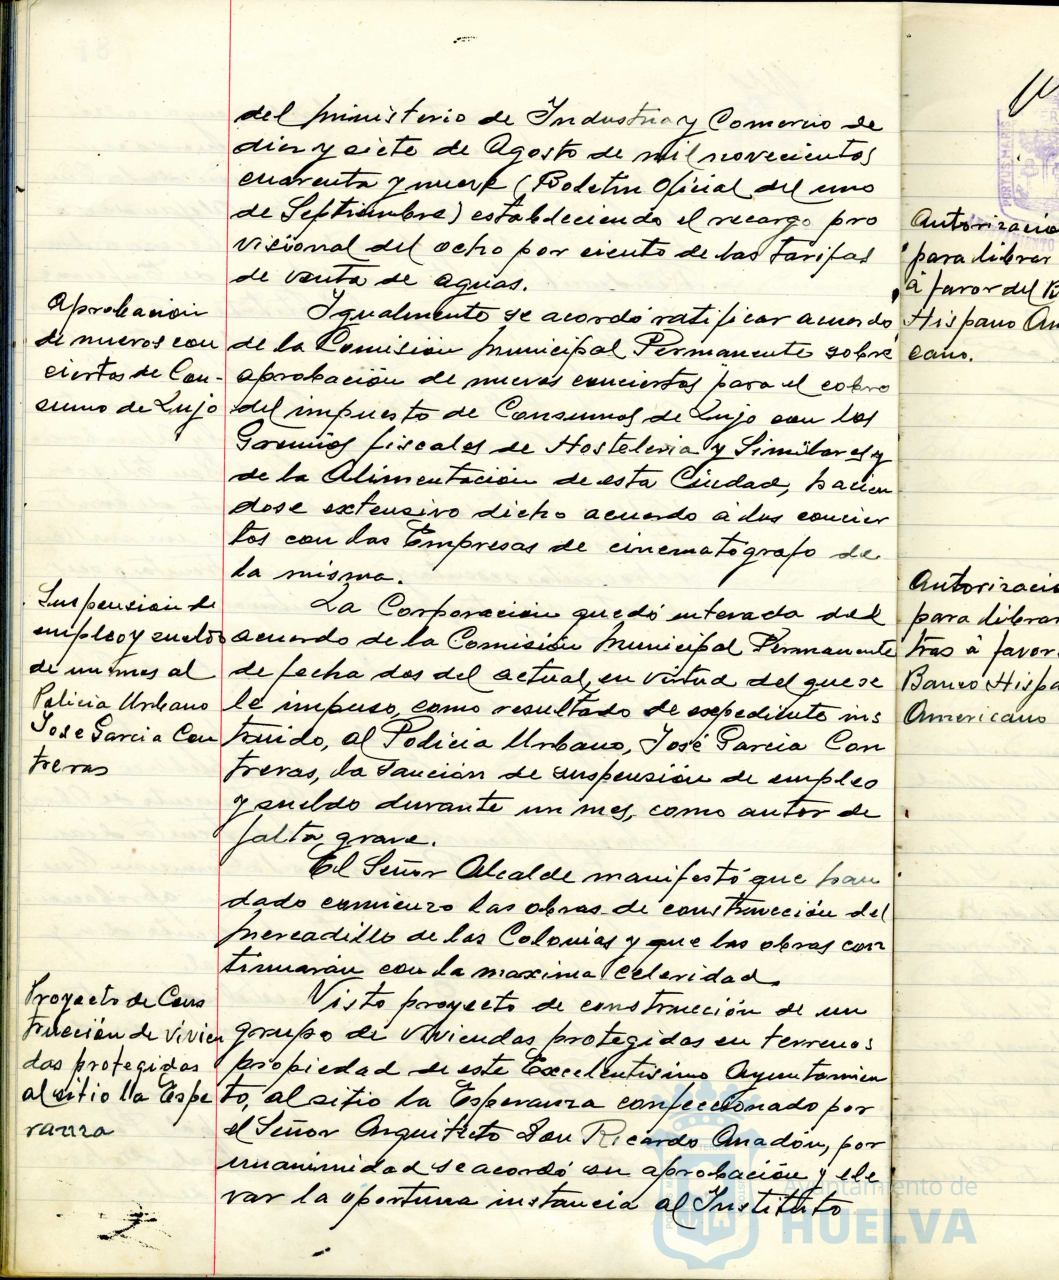 del Ministerio de Industria y Comercio de
diez y siete de Agosto de mil novecientos
cuarenta y nueve (Boletin Oficial del uno
de Septiembre) estableciendo el recargo pro
visional del ocho por ciento de las tarifas
de venta de aguas.
Aprobación
de nuevos con
ciertos de Con-
sumo de Lujo
Igualmente se acordó ratificar acuerdo
de la Comisión Municipal Permanente sobre
aprobación de nuevos conciertos para el cobro
del impuesto de Consumos de Lujo con los
Gremios fiscales de Hosteleria y Similares y
de la Alimentación de esta Ciudad, hacien
dose extensivo dicho acuerdo á los concier
tos con las Empresas de cinematógrafo de
la misma.
Suspensión de
empleo y sueldo
de un mes al
Policia Urbano
Jose Garcia Con
treras
La Corporación quedó enterada del
acuerdo de la Comisión Municipal Permanente
de fecha dos del actual, en virtud del que se
le impuso, como resultado de expediente ins
truido, al Policia Urbano, José Garcia Con
treras, la sanción de suspensión de empleo
y sueldo durante un mes, como autor de
falta grave.
El Señor Alcalde manifestó que han
dado comienzo las obras de construcción del
Mercadillo de las Colonias y que las obras con
tinuarán con la maxima celeridad.
Proyecto de Cons
trucción de vivien
das protegidas
al sitio la Espe
ranza
Visto proyecto de construcción de un
grupo de viviendas protegidas en terrenos
propiedad de este Excelentisimo Ayuntamien
to, al sitio la Esperanza confeccionado por
el Señor Arquitecto Don Ricardo Anadón, por
unanimidad se acordó su aprobación y ele
var la oportuna instancia al Instituto
Autorizació
para librar
á favor del B
Hispano Am
cano.
Autorizació
para librar
tras á favor
Banco Hispa
Americano
Ayuntamiento de
HUELVA